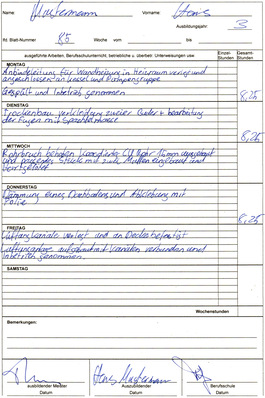 Name: Mustermann Vorname: Hans
Ausbildungsjahr: 3
lfd. Blatt-Nummer 85 Woche vom bis
ausgeführte Arbeiten, Berufsschulunterricht, betriebliche u. überbetr. Unterweisungen usw. Einzel-Stunden Gesamt-Stunden
MONTAG
Anbindeleitung für Wandheizung in Heizraum verlegt und
angeschlossen an Kessel und Pumpengruppe
Gespült und Inbetrieb genommen 8,25
DIENSTAG
Trockenbau Verkleidung zweier Bäder + bearbeitung
der Fugen mit Spachtelmasse 8,25
MITTWOCH
Rohrbruch behoben 15mm
und passendes Stück mit Muffen eingesetzt und
8,25
DONNERSTAG
Dämmung eines Dachbodens und Abklebung mit
Folie
8,25
FREITAG
Lüftungskanäle verlegt und an Decke befestigt
Lüftungsanlage mit Kanälen verbunden und
Inbetrieb genommen.
SAMSTAG
Wochenstunden
Bemerkungen:
Hans Mustermann
ausbildender Meister Auszubildender Berufsschule
Datum Datum Datum